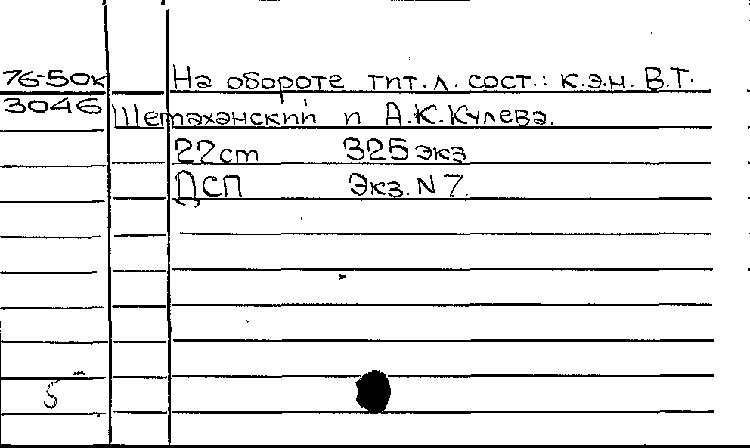 76-50к На обороте тит.л. сост.: к.э.н. В.Т.
3046 Шетаханский и А.К.Кулева.
22cm 325 экз
ДСП Экз. N 7.
5